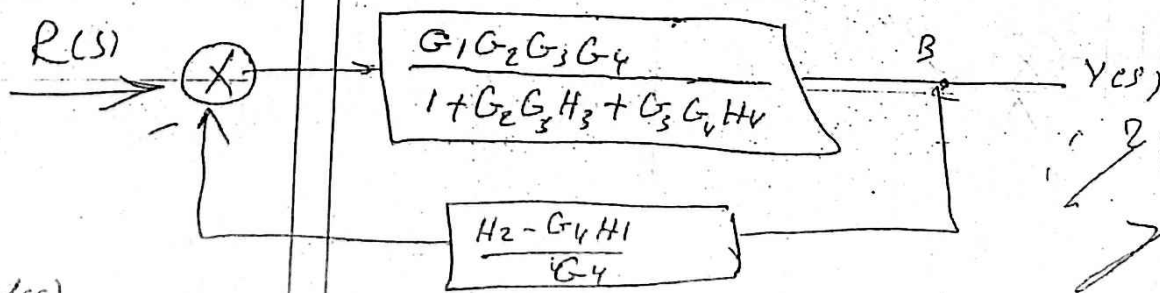 R(S)
G1G2G3G4
1+G2G3H3+G3G4H4
B
Y(S)
2
-
H2-G4H1
G4